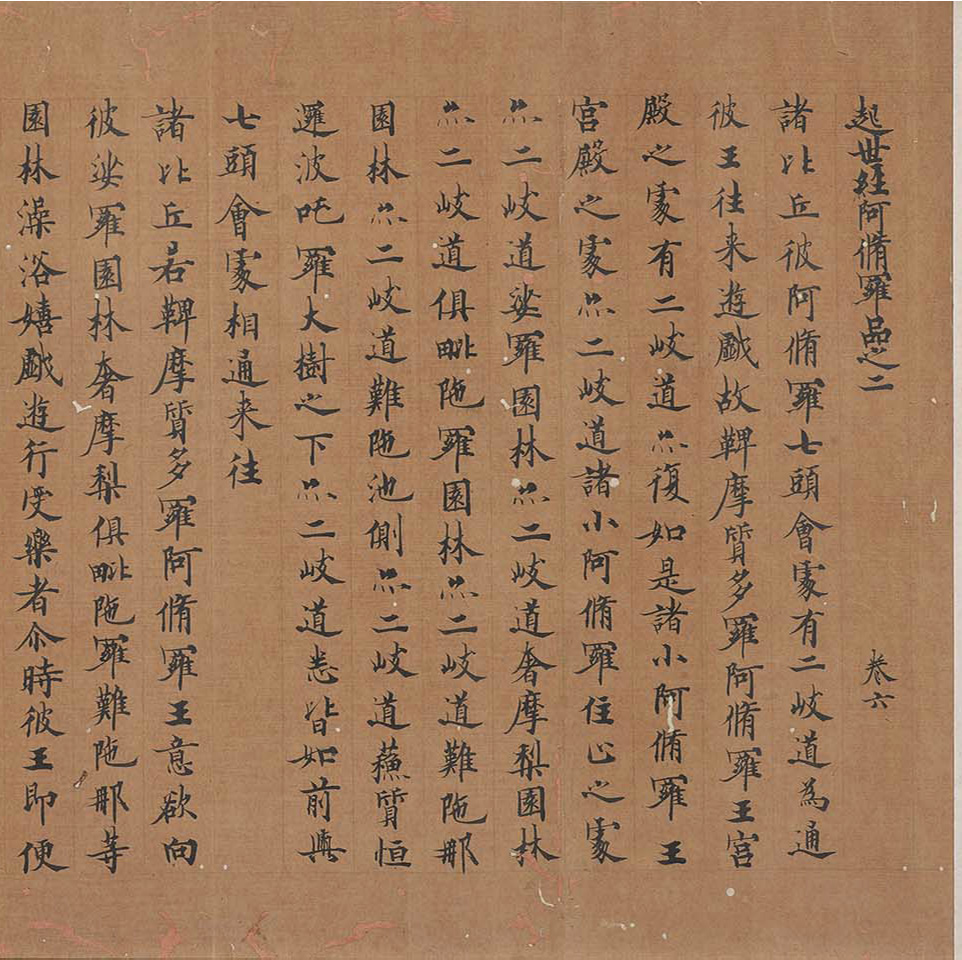 起世經阿脩羅品之二　卷六
諸比丘彼阿脩羅七頭會處有二岐道為通
彼王往来遊戲故鞞摩質多羅阿脩羅王宮
殿之處有二岐道亦復如是諸小阿脩羅王
宮殿之處亦二岐道諸小阿脩羅住止之處
亦二岐道娑羅園林亦二岐道奢摩梨園林
亦二岐道俱毗陁羅園林亦二岐道難陁那
園林亦二岐道難陁池側亦二岐道蘓質怛
邏波吒羅大樹之下亦二岐道悉皆如前與
七頭會處相通来往
諸比丘若鞞摩質多羅阿脩羅王意欲向
彼娑羅園林奢摩梨俱毗陁羅難陁那等
園林澡浴嬉戲遊行受樂者尒時彼王即便